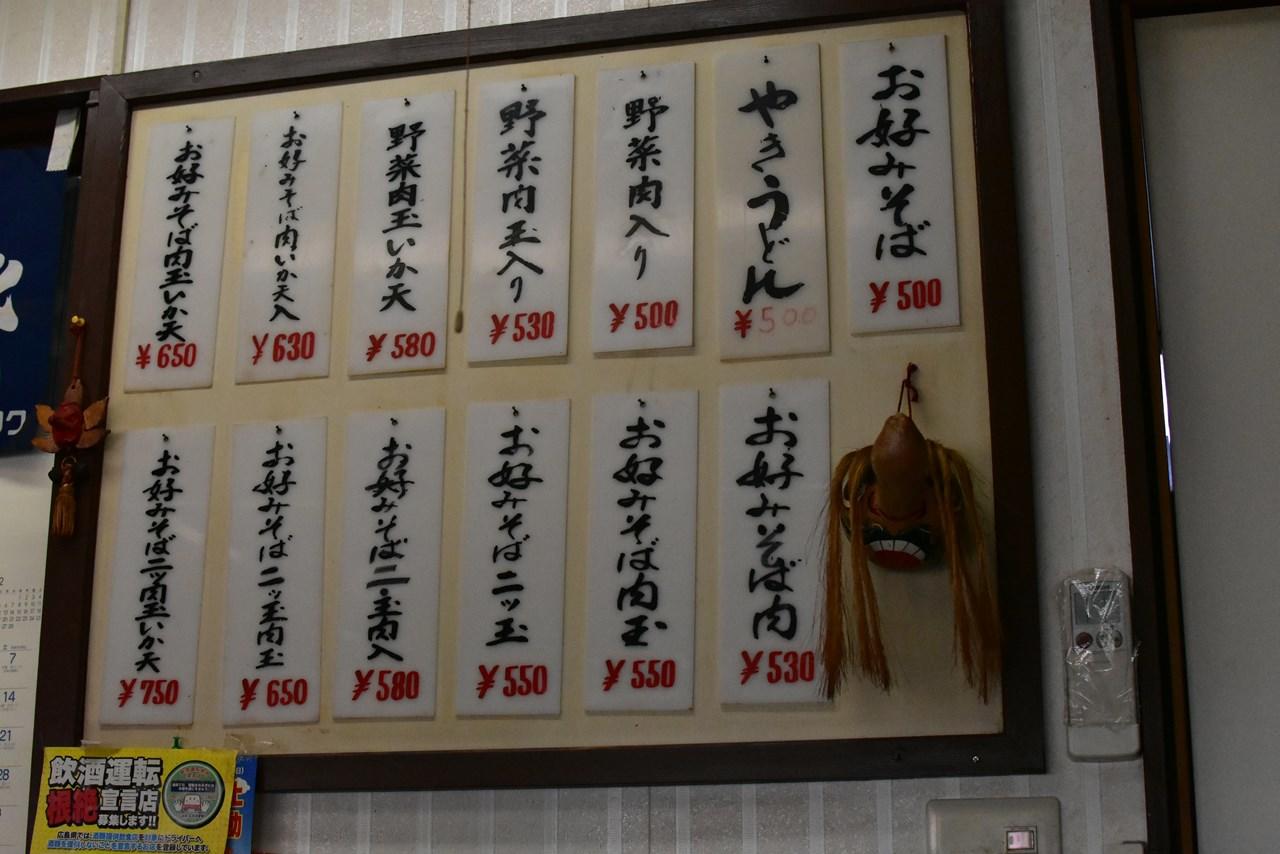 お好みそば
¥500
やきうどん
¥500
野菜肉入り
¥500
野菜肉玉入り
¥530
野菜肉玉いか天
¥580
お好みそば肉いか天入
¥630
お好みそば肉玉いか天
¥650
お好みそば肉
¥530
お好みそば肉玉
¥550
お好みそば二ッ玉
¥550
お好みそば二玉肉入
¥580
お好みそば二ッ玉肉玉
¥650
お好みそば二ッ肉玉いか天
¥750
飲酒運転
根絶宣言店
募集します!!
広島県では
7
14
21
28